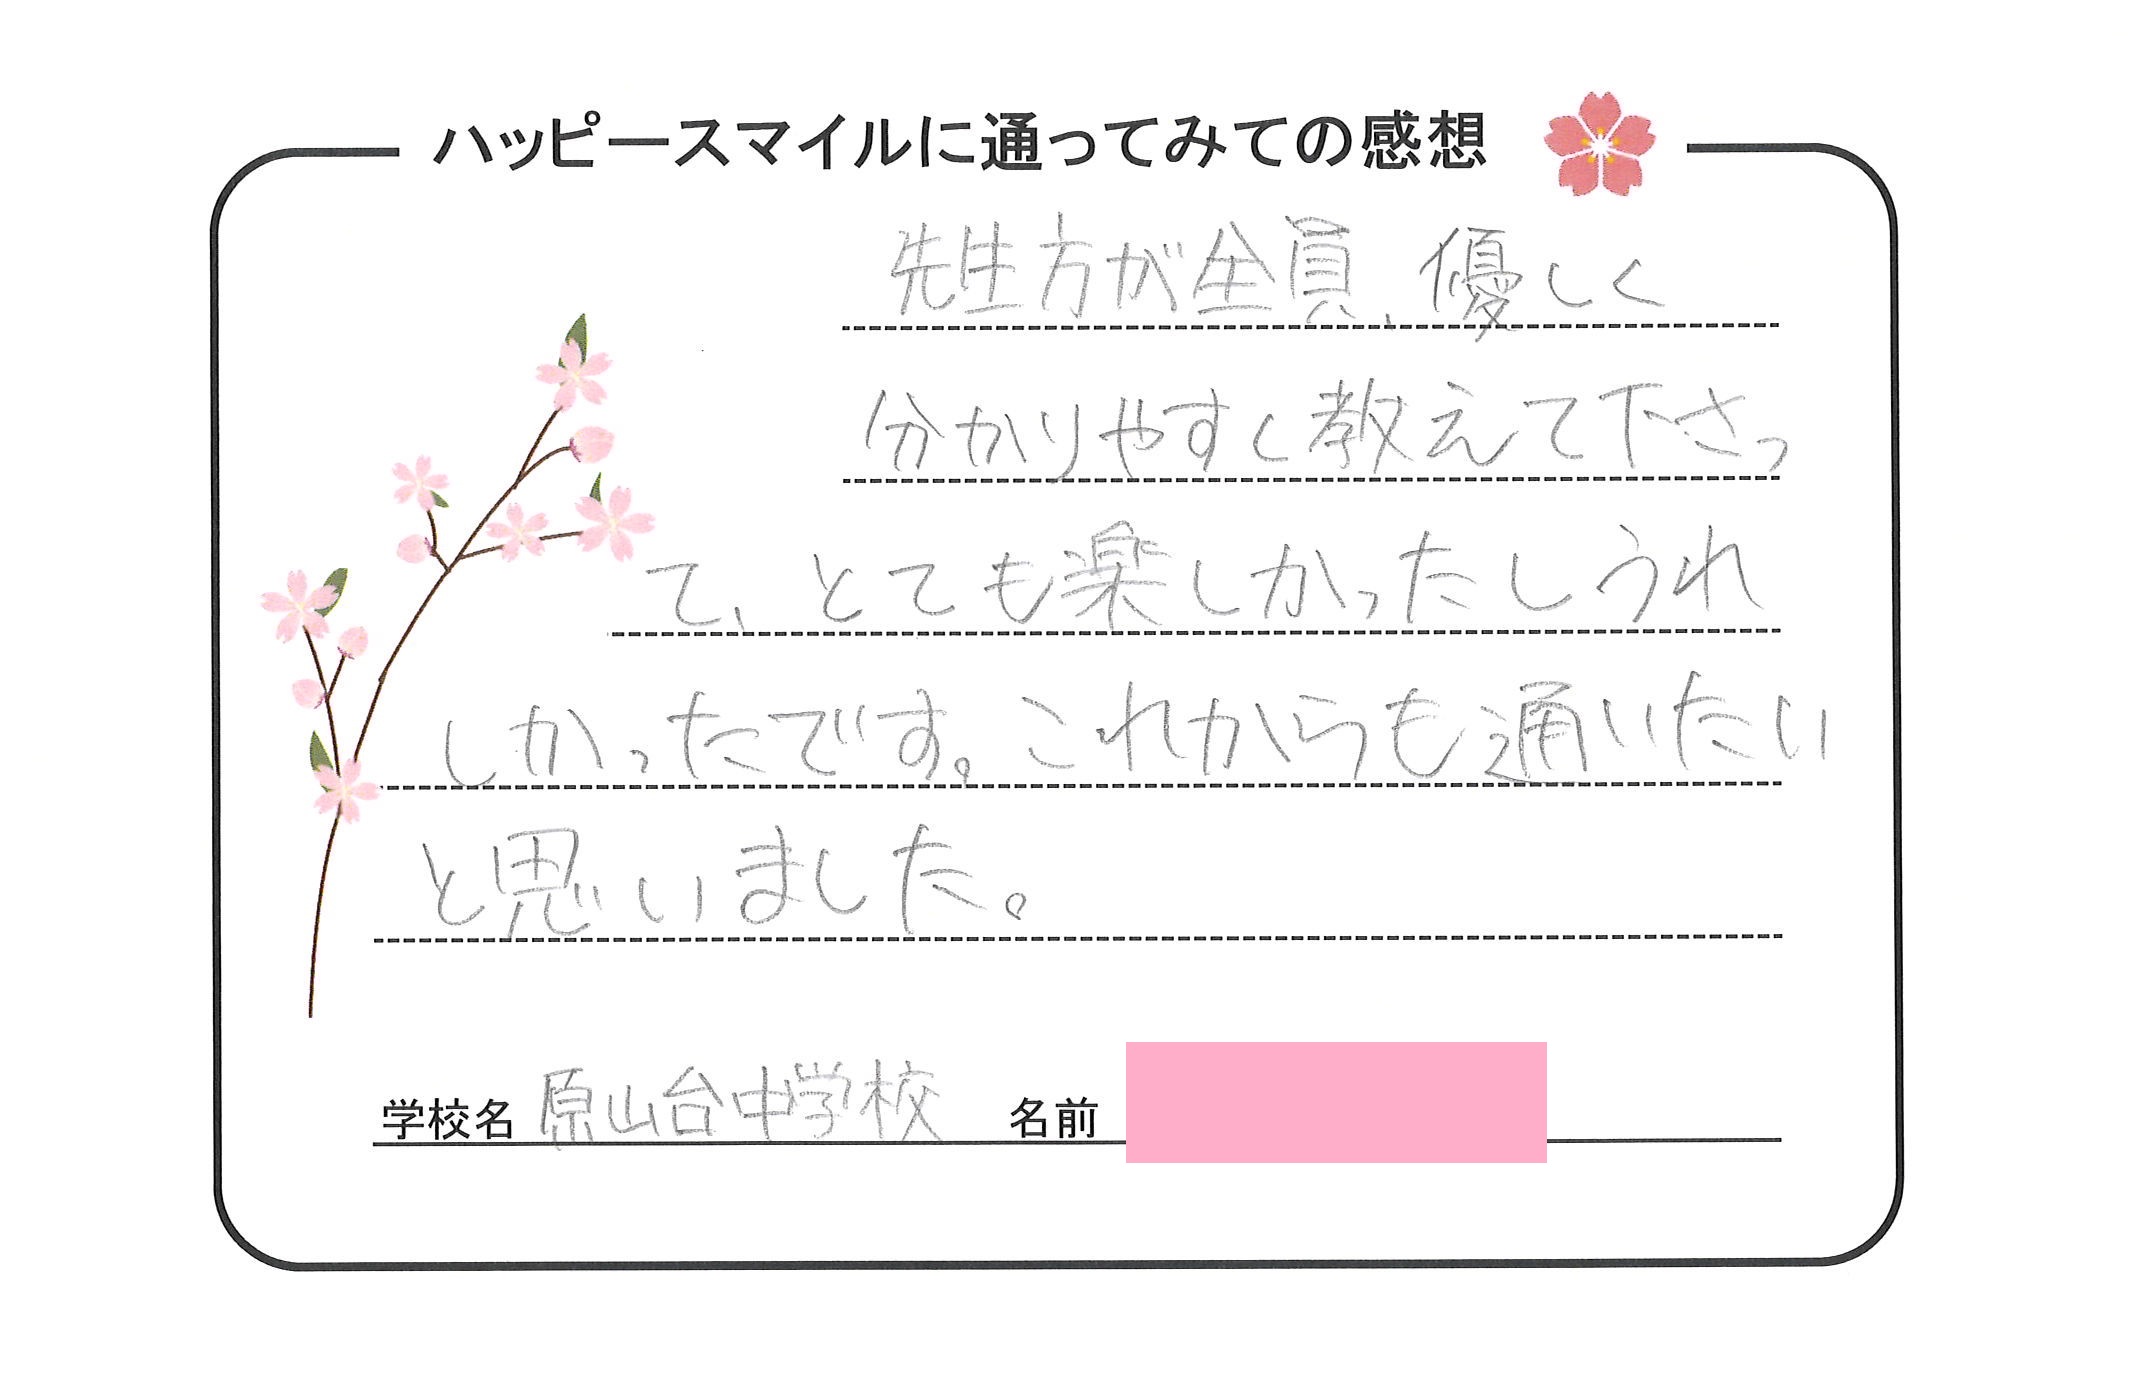 ハッピースマイルに通ってみての感想
先生方が全員、優しく
分かりやすく教えて下さっ
て、とても楽しかったしうれ
しかったです。これからも通いたい
と思いました。
学校名 原山台中学校 名前